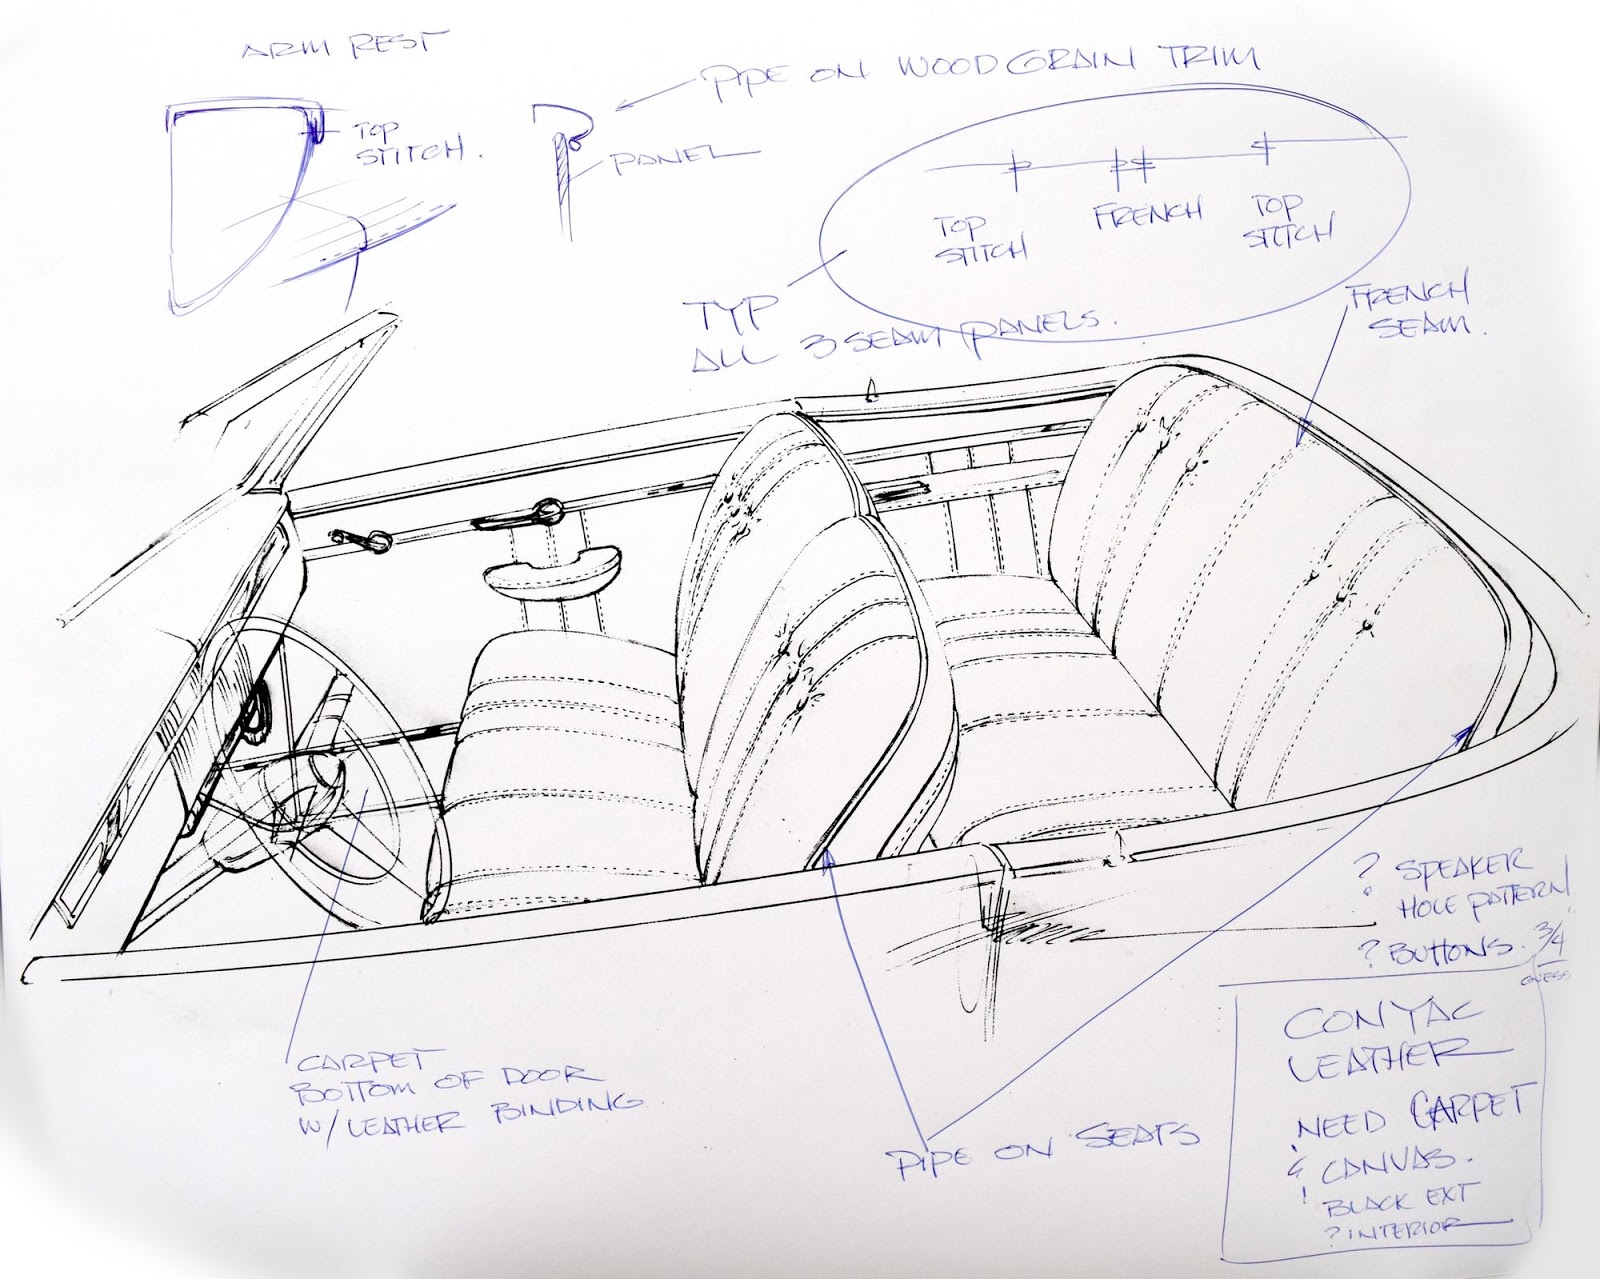 ARM REST
TOP
STITCH.
PIPE ON WOODGRAIN TRIM
PANEL
TOP
STITCH
FRENCH
TOP
STITCH
TYP
ALL 3 SEAM PANELS.
FRENCH
SEAM.
? SPEAKER
HOLE PATTERN
? BUTTONS. 3/4"
GUESS
CONYAC
LEATHER
NEED CARPET
& CANVAS.
BLACK EXT
? INTERIOR
CARPET
BOTTOM OF DOOR
W/LEATHER BINDING
PIPE ON SEATS